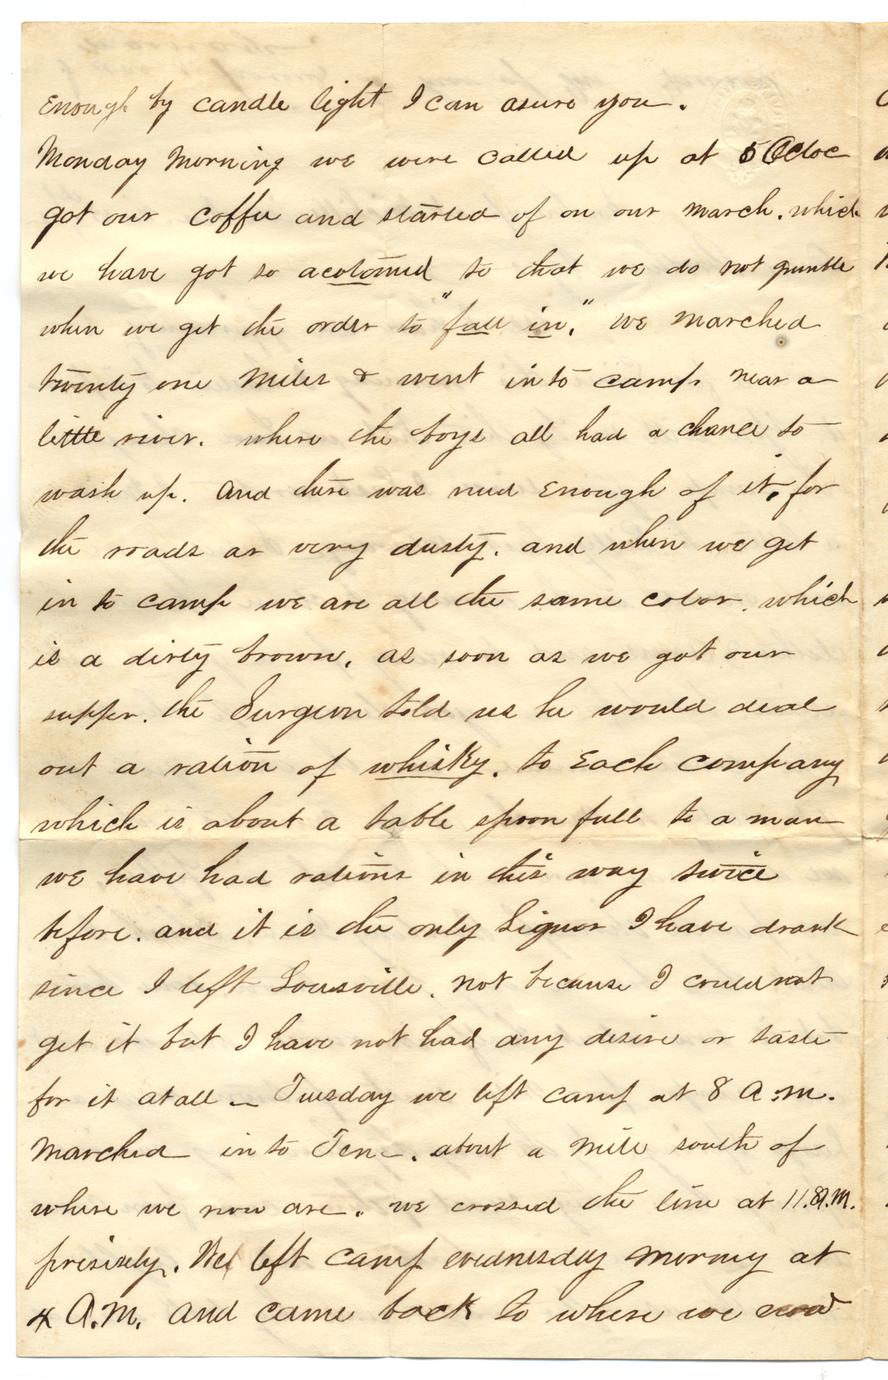 Enough by candle light I can asure you.
Monday Morning we were called up at 5 Ocloc
got our coffee and started of on our march. which
we have got so acotomed to that we do not grumble
when we get the order to "fall in," we marched
twenty one Miles & went in to camp near a
little river. where the boys all had a chance to
wash up. and there was nead Enough of it, for
the roads ar very dusty. and when we get
in to camp we are all the same color. which
is a dirty brown. as soon as we got our
supper. the Surgeon told us he would deal
out a ration of whisky. to Each company
which is about a table spoon full to a man
we have had rations in this way twice
before. and it is the only Liquor I have drank
since I left Louisville. not because I could not
get it but I have not had any desire or taste
for it at all — Tuesday we left camp at 8 A.M.
Marched in to Ten-. about a Mile south of
where we now are. we crossed the line at 11. A.M.
presisely. We left camp wednesday morning at
4 A.M. and came back to where we now